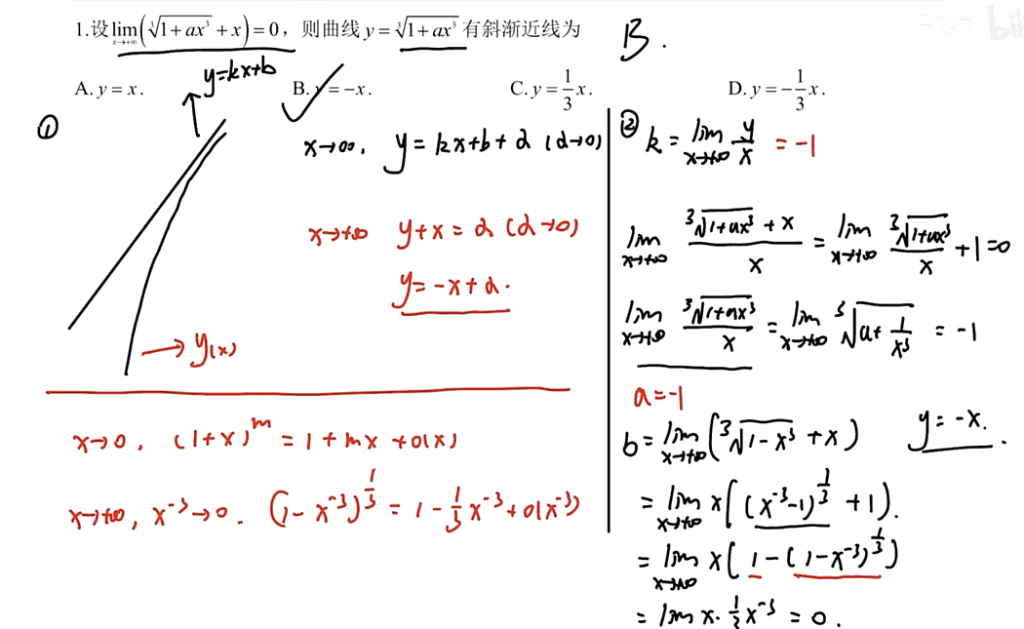 1.设lim(∛(1+ax³)+x)=0，则曲线y=∛(1+ax³)有斜渐近线为
x→+∞
B.
A. y=x.
B. y=-x.
C. y=1/3 x.
D. y=-1/3 x.
y=kx+b
①
x→∞, y=kx+b+α (α→0)
x→+∞ y+x=α (α→0)
y=-x+α.
→y(x)
x→0, (1+x)^m=1+mx+o(x)
x→+∞, x⁻³→0. (1-x⁻³)^(1/3)=1-1/3 x⁻³+o(x⁻³)
② k=lim(x→+∞) y/x =-1
lim(x→+∞) (∛(1+ax³)+x)/x = lim(x→+∞) ∛(1+ax³)/x +1=0
lim(x→+∞) ∛(1+ax³)/x = lim(x→+∞) ∛(a+1/x³) = -1
a=-1
b=lim(x→+∞) (∛(1-x³)+x) y=-x.
=lim(x→+∞) x((x⁻³-1)^(1/3)+1).
=lim(x→+∞) x(1-(1-x⁻³)^(1/3))
=lim x·1/3 x⁻³=0.